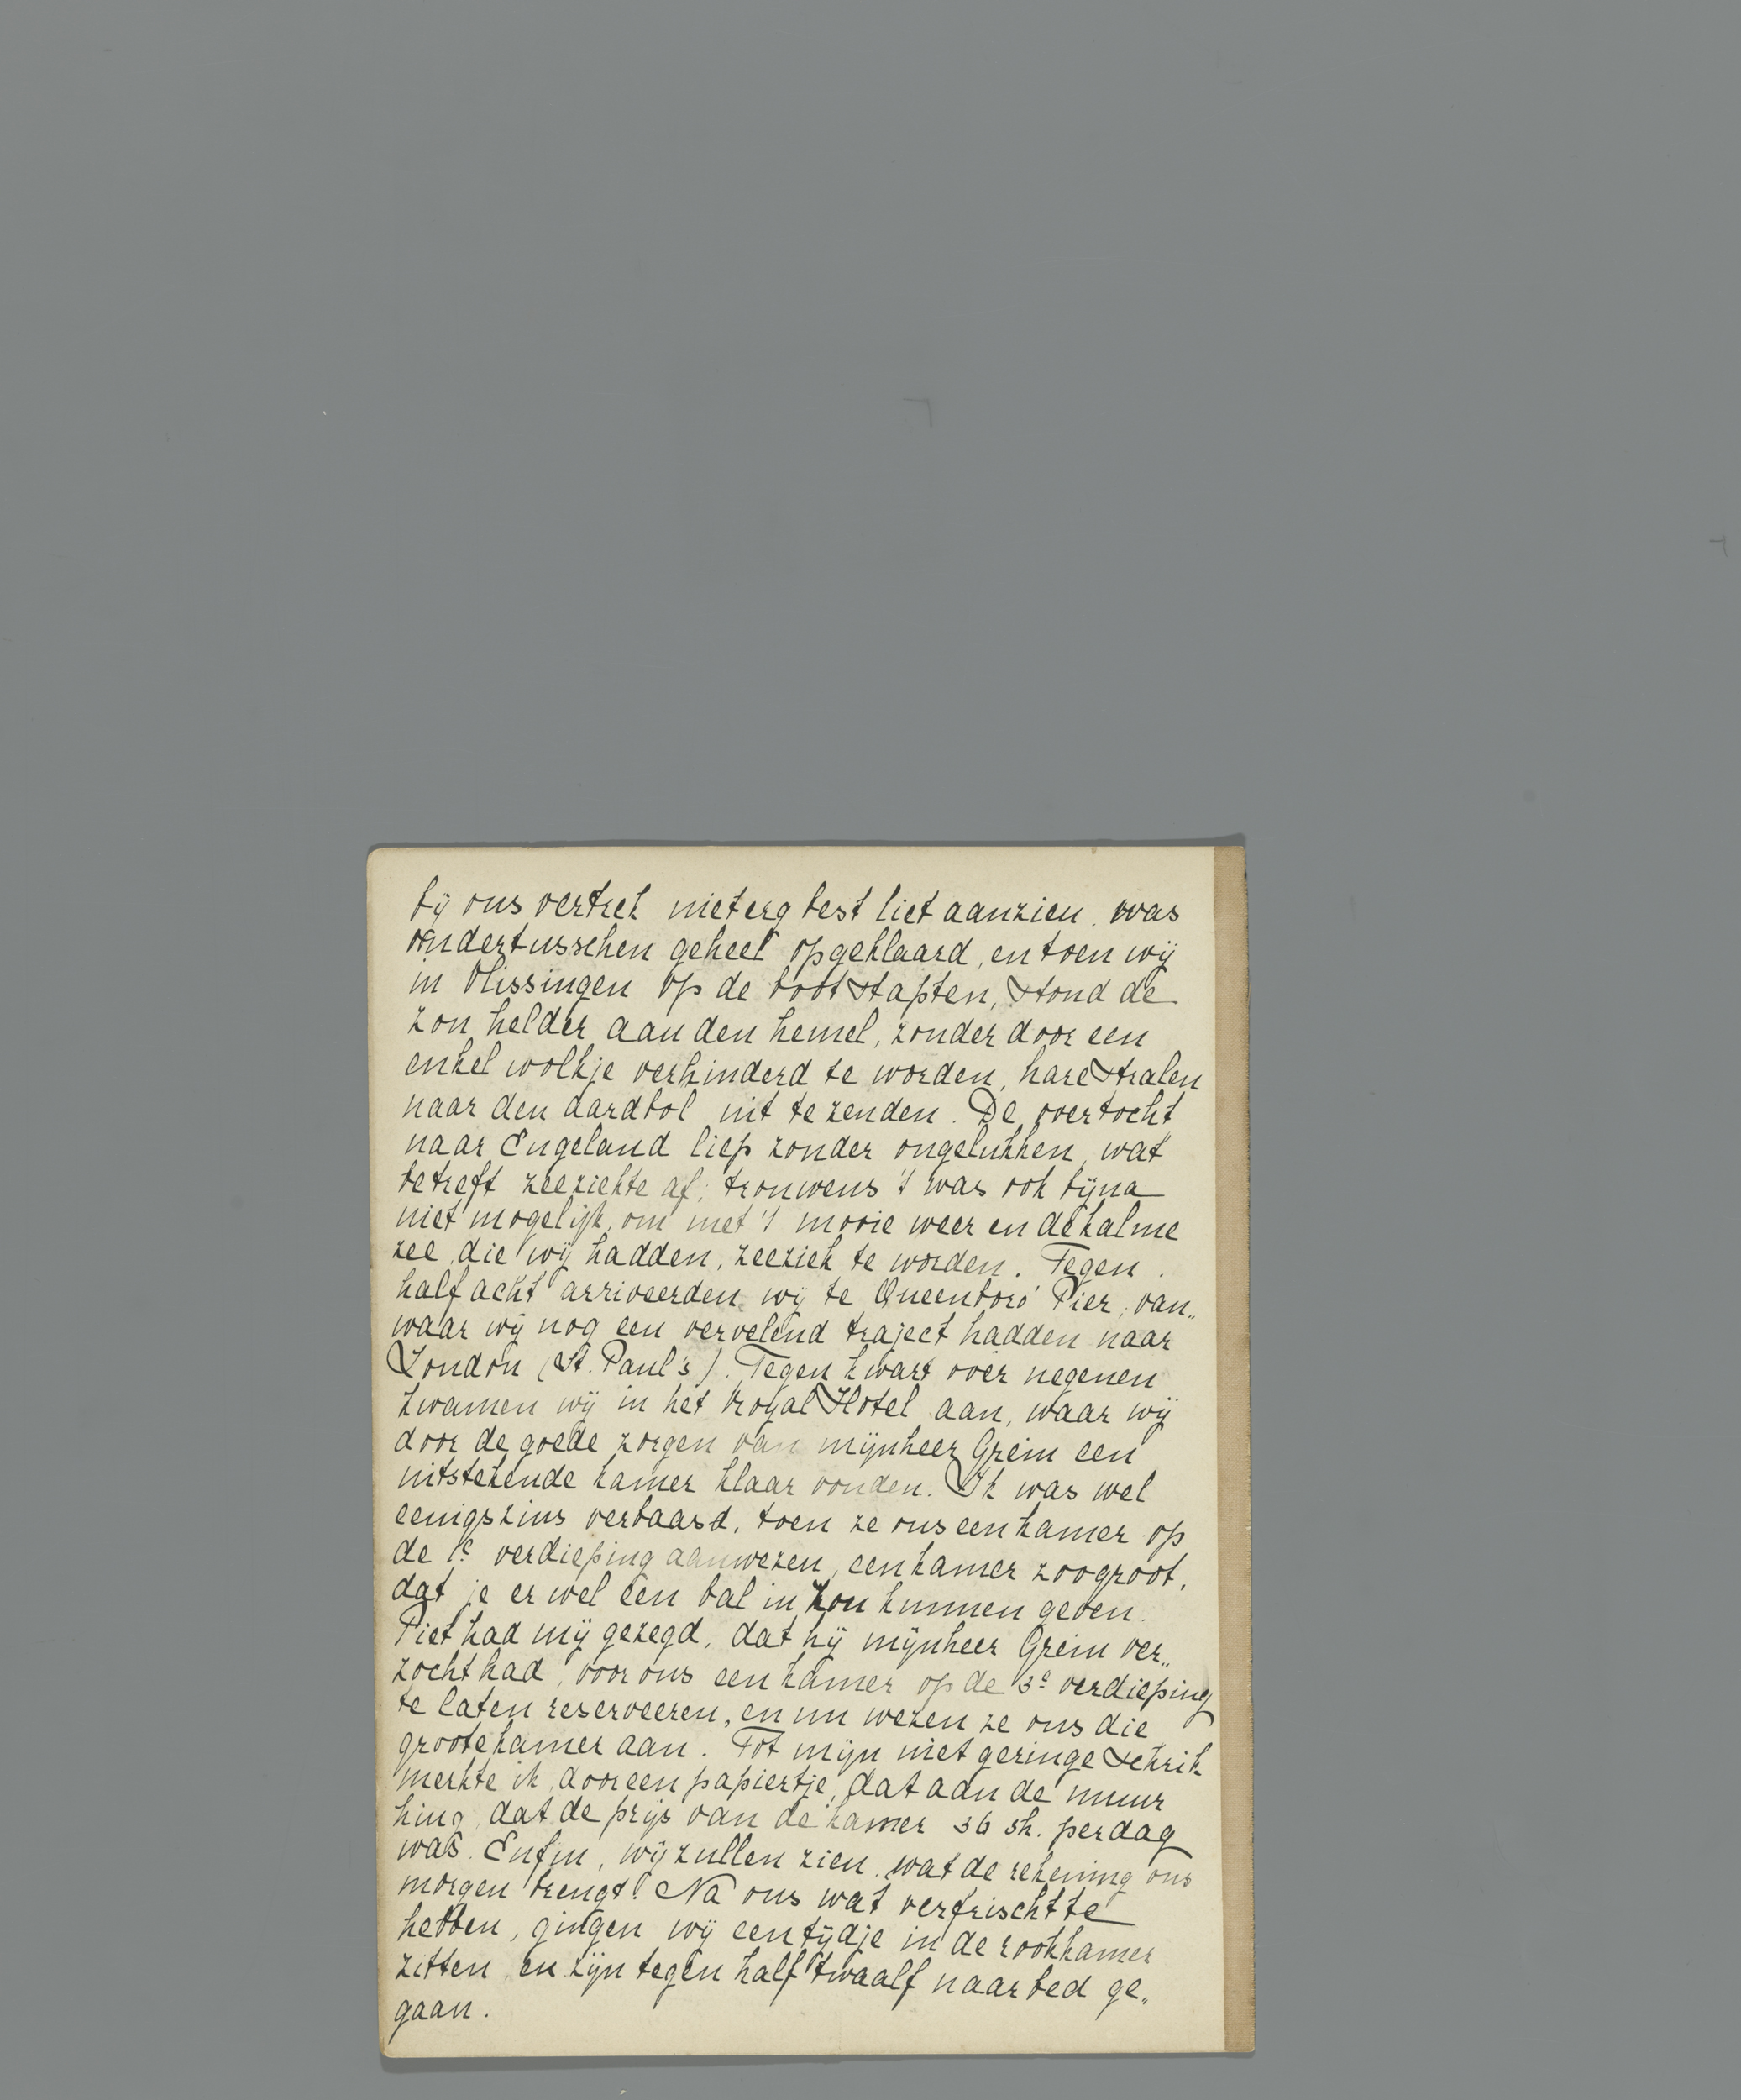 bij ons vertrek niet erg best liet aanzien. was
ondertusschen geheel opgeklaard, en toen wij
in Vlissingen op de boot stapten, stond de
zon helder aan den hemel, zonder door een
enkel wolkje verhinderd te worden, hare stralen
naar den aardbol uit te zenden. De overtocht
naar Engeland liep zonder ongelukken, wat
betreft zeeziekte af; trouwens 't was ook bijna
niet mogelijk, om met 't mooie weer en de kalme
zee, die wij hadden, zeeziek te worden. Tegen
half acht arriveerden wij te Queenboro' Pier, van„
waar wij nog een vervelend traject hadden naar
London (St. Paul's). Tegen kwart over negenen
kwamen wij in het Royal Hotel aan, waar wij
door de goede zorgen van mijnheer Grein een
uitstekende kamer klaar vonden. Ik was wel
eenigszins verbaasd, toen ze ons een kamer op
de 1e verdieping aanwezen, een kamer zoo groot,
dat je er wel een bal in zou kunnen geven.
Piet had mij gezegd, dat hij mijnheer Grein ver„
zocht had, voor ons een kamer op de 3e verdieping
te laten reserveeren, en nu wezen ze ons die
groote kamer aan. Tot mijn niet geringe schrik
merkte ik, door een papiertje, dat aan de muur
hing, dat de prijs van de kamer 36 sh. per dag
was. Enfin, wij zullen zien, wat de rekening ons
morgen brengt. Na ons wat verfrischt te
hebben, gingen wij een tijdje in de rookkamer
zitten en zijn tegen half twaalf naar bed ge„
gaan.